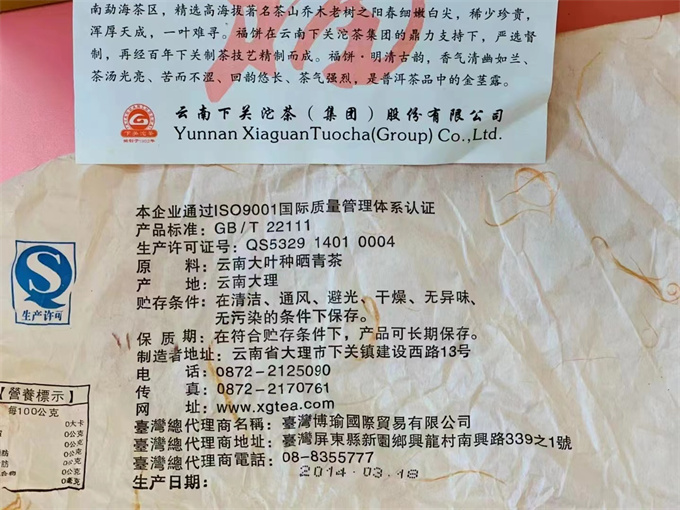 南勐海茶区，精选高海拔著名茶山乔木老树之阳春细嫩白尖，稀少珍贵，
浑厚天成，一叶难寻。福饼在云南下关沱茶集团的鼎力支持下，严选督
制，再经百年下关制茶技艺精制而成。福饼·明清古韵，香气清幽如兰、
茶汤光亮、苦而不涩、回韵悠长、茶气强烈，是普洱茶品中的金茎露。
下关沱茶
云南下关沱茶（集团）股份有限公司
Yunnan XiaguanTuocha(Group) Co.,Ltd.
本企业通过ISO9001国际质量管理体系认证
产品标准：GB/T 22111
生产许可证号：QS5329 1401 0004
原 料：云南大叶种晒青茶
产 地：云南大理
贮存条件：在清洁、通风、避光、干燥、无异味、
无污染的条件下保存。
保 质 期：在符合贮存条件下，产品可长期保存。
制造者地址：云南省大理市下关镇建设西路13号
电 话：0872-2125090
传 真：0872-2170761
网 址：www.xgtea.com
臺灣總代理商名稱：臺灣博瑜國際貿易有限公司
臺灣總代理商地址：臺灣屏東縣新園鄉興龍村南興路339之1號
臺灣總代理商電話：08-8355777
生产日期：2014-03-18
生产许可
【營養標示】
每100公克
0大卡
0公克
0公克
0公克
0公克
0毫克